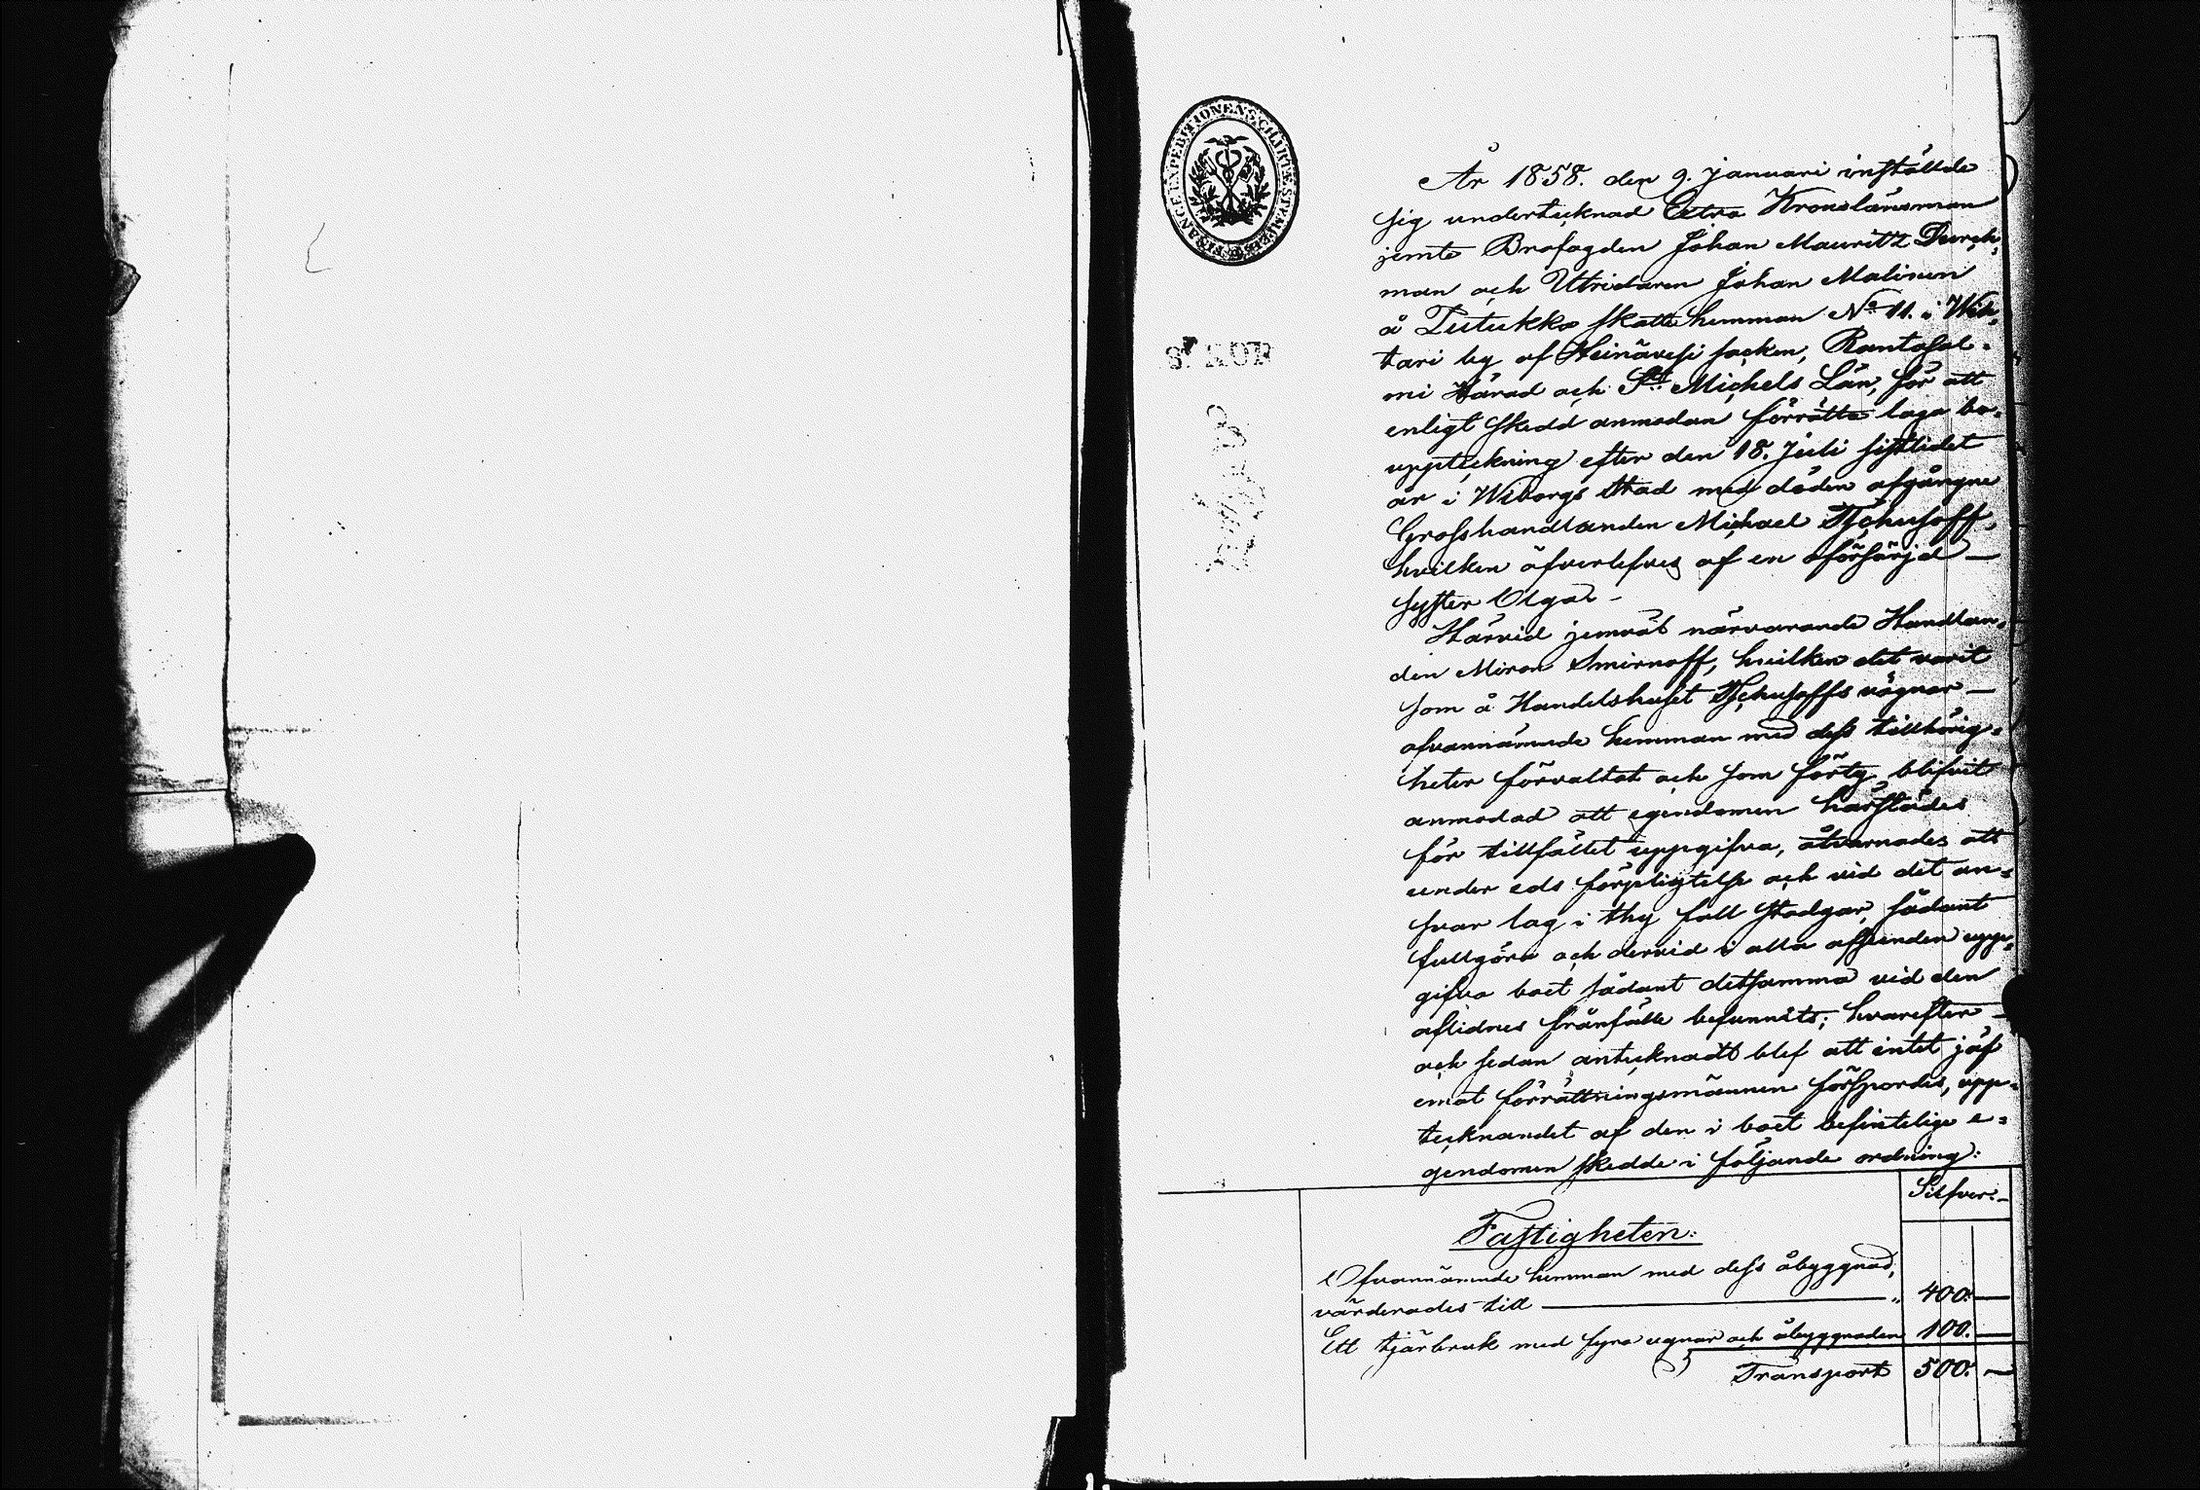 FINANCE EXPEDITIONENS CHARTÆ STÆMPEL
År 1858. den 9. januari instälde
sig undertecknad Extra Kronolänsman
jemte Brofogden Johan Mauritz
man och Utridaren Johan Malinen
å skatte hemman No 11. i Wih-
tari by af Heinävesi socken, Rantasal-
mi Härad och St Michels Län, för att
enligt skedd anmodan förrätta laga bo-
uppteckning efter den 18. Juli sistlidet
år i Wiborgs stad med döden afgångne
Grosshandlanden Michael Tschusoff,
hvilken öfverlefves af en oförsörjd —
syster Olga. –
Härvid jemväl närvarande Handlan-
den Miron Smirnoff, hvilken det varit
som å Handelshuset Tschusoffs vägnar —
ofvannämnde hemman med dess tillhörig-
heter förvaltat och som blifvit
anmodad att egendomen härstädes
för tillfället uppgifva, åtvarnades att
under eds förpligtelse och vid det an-
svar lag i thy fall stadgar, sådant
fullgöra och dervid i alla afseenden upp-
gifva boet sådant detsamma vid den
aflidnes frånfälle befunnits; hvarefter —
och sedan antecknadt blef att intet jäf
emot förrättningsmännen förspordes, upp-
tecknandet af den i boet befintelige e-
gendomen skedde i följande ordning:
Silfver.
Fastigheten:
Ofvannämnde hemman med dess åbyggnad,
värderades till — " 400. —
Ett tjärbruk med fyra ugnar och åbyggnaden 100. —
Transport 500. —